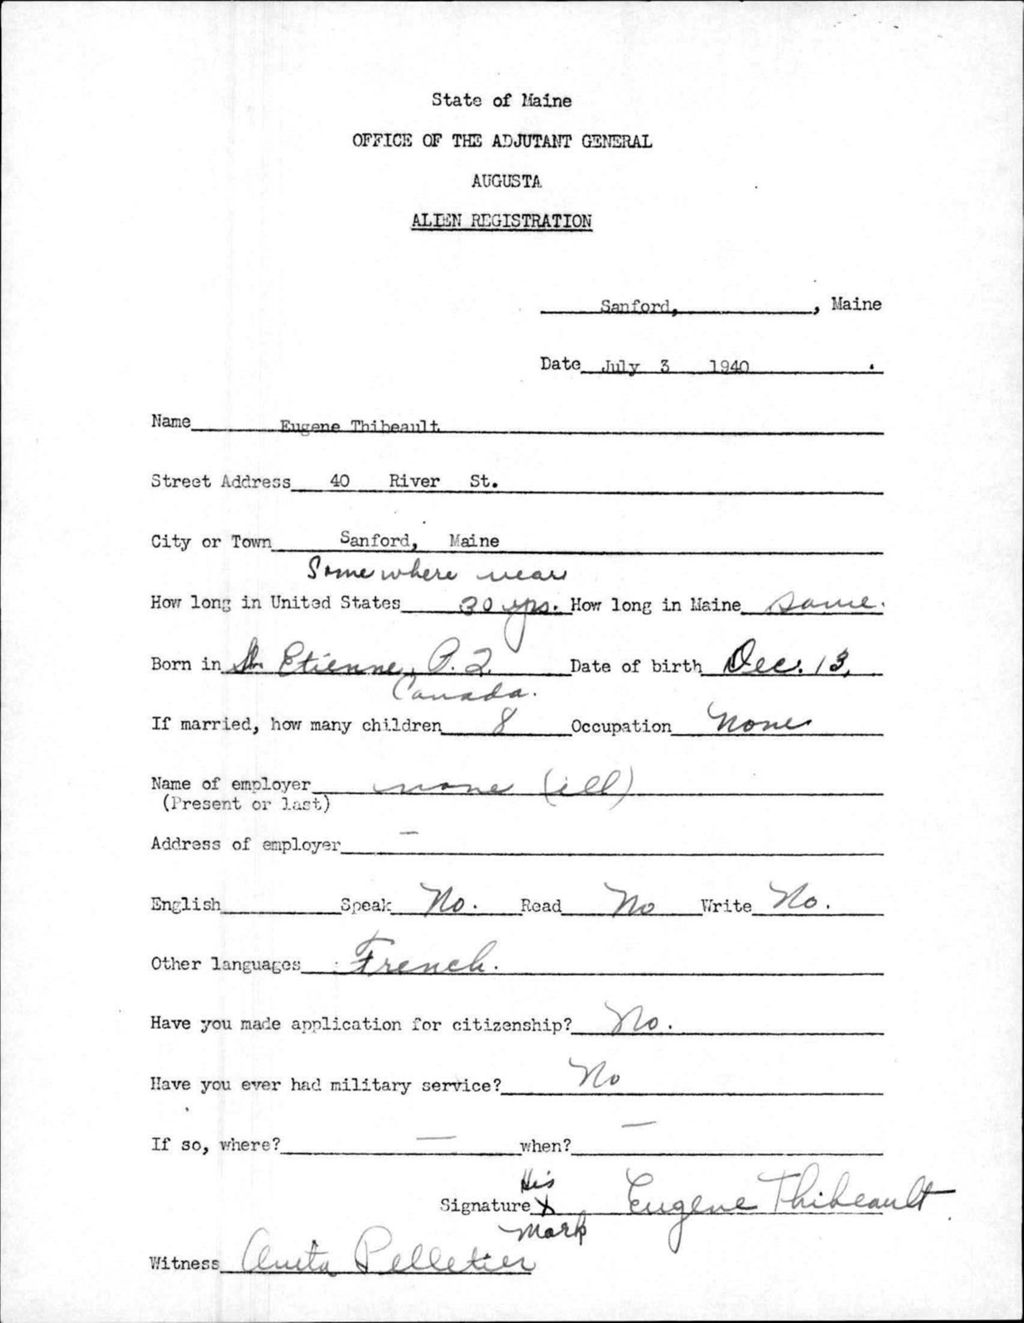 State of Maine
OFFICE OF THE ADJUTANT GENERAL
AUGUSTA
ALIEN REGISTRATION
Sanford, , Maine
Date July 3 1940 .
Name Eugene Thibeault
Street Address 40 River St.
City or Town Sanford, Maine
Somewhere near
How long in United States 30 yrs. How long in Maine same.
Born in St. Etienne, P.Q. Date of birth Dec. 13,
Canada.
If married, how many children 8 Occupation None
Name of employer none (ill)
(Present or last)
Address of employer —
English Speak No. Read No Write No.
Other languages French.
Have you made application for citizenship? No.
Have you ever had military service? No
If so, where? — when? —
His
Signature X Eugene Thibeault
Mark
Witness Anita Pelletier